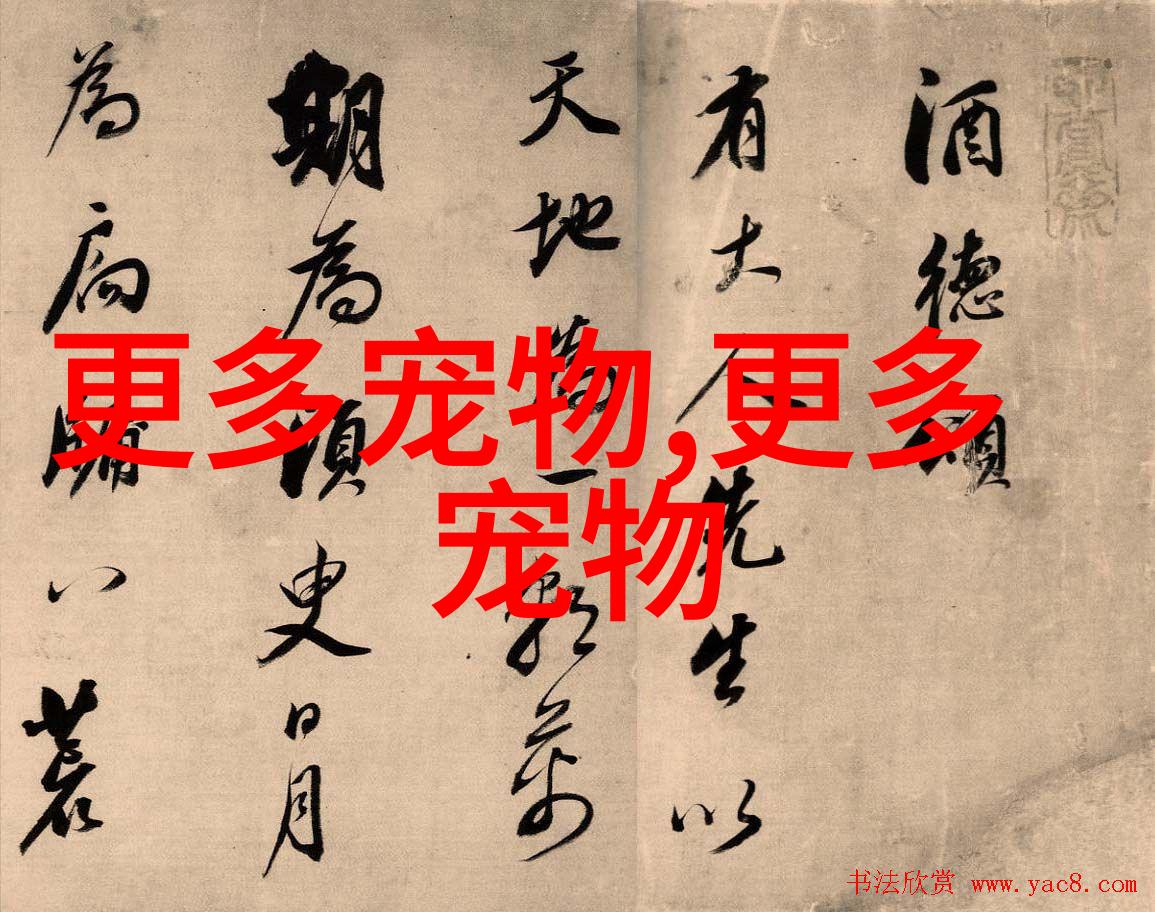 酒德頌
有大人先生以
天地為一朝萬
期為須臾日月
為扃牖八荒
更多宠物,更多
宠物
书法欣赏 www.yac8.com